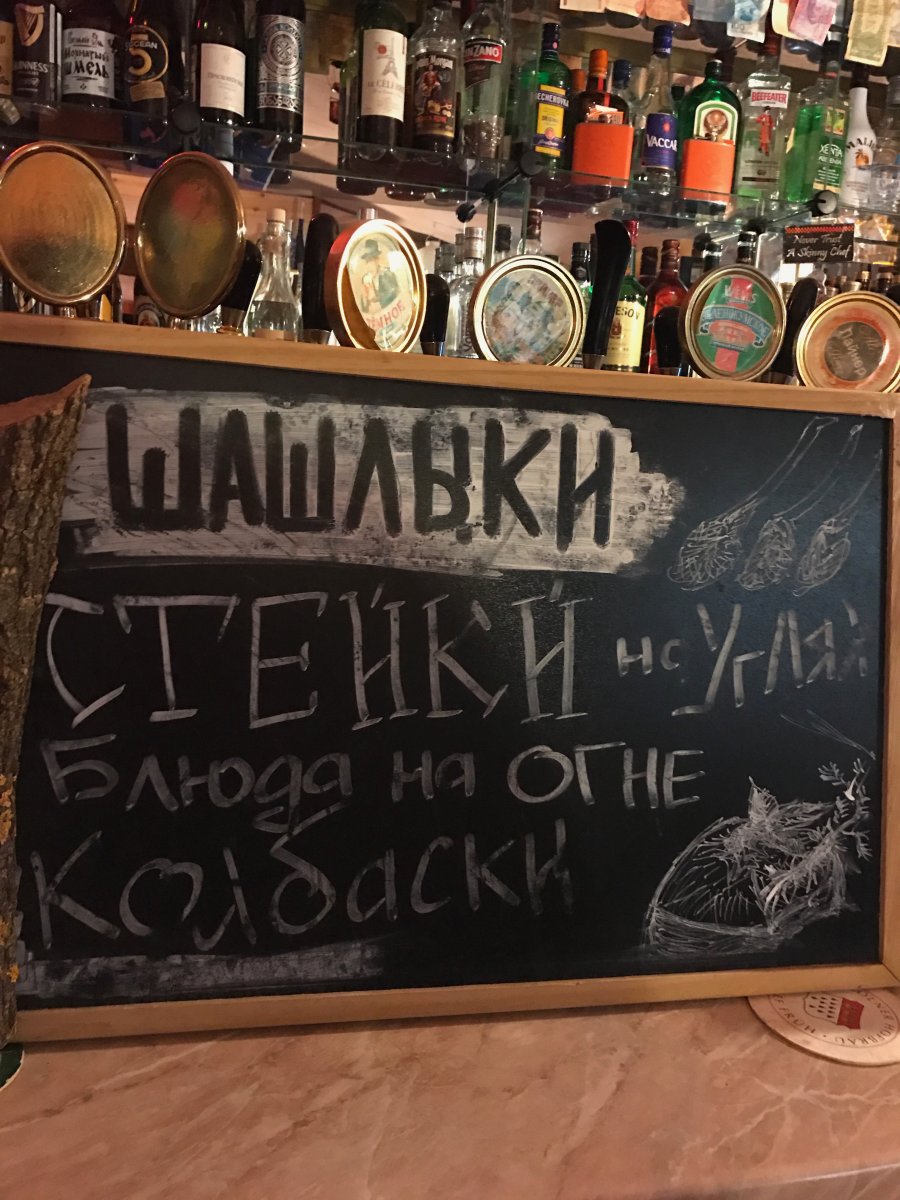 GUINNESS
Мохнатый
ШМЕЛЬ
OCEAN
5
CINZANO
BECHEROVKA
VACCARI
BEEFEATER
XENTA
Never Trust
A Skinny Chef
ШАШЛЫКИ
СТЕЙКИ на Углях
Блюда на ОГНЕ
Колбаски